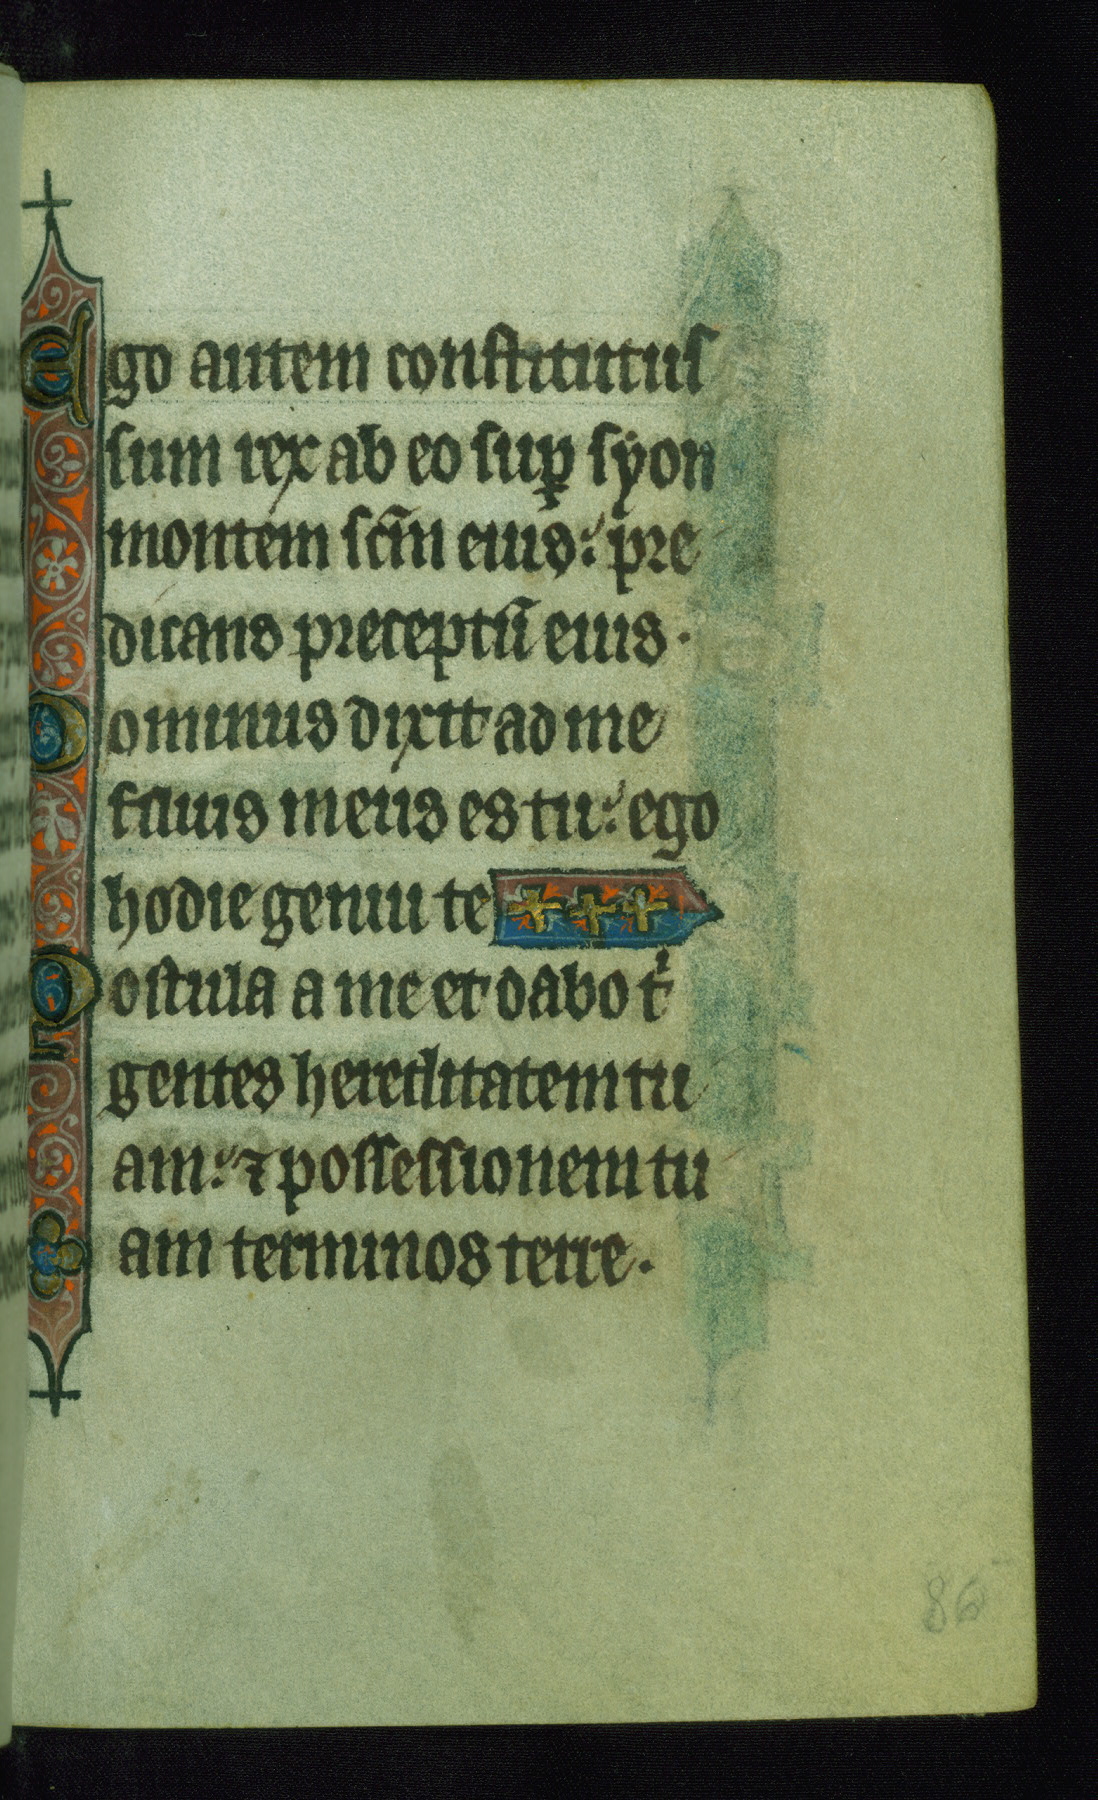 Ego autem constitutus
sum rex ab eo sup̱ syon
montem sc̃m eius: pre
dicans preceptũ eius.
Dominus dixit ad me
filius meus es tu: ego
hodie genui te
Postula a me et dabo tⁱ
gentes hereditatem tu
am: ⁊ possessionem tu
am terminos terre.
86